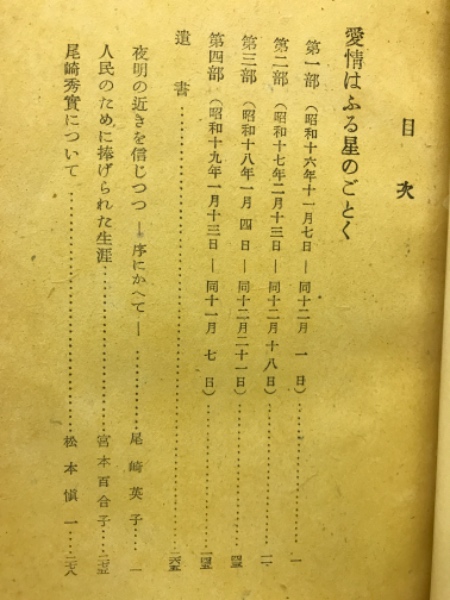 目次
愛情はふる星のごとく
第一部（昭和十六年十一月七日―同十二月一日）……一
第二部（昭和十七年二月十三日―同十二月十八日）……
第三部（昭和十八年一月四日―同十二月二十一日）……
第四部（昭和十九年一月十三日―同十一月七日）……
遺書……
夜明の近きを信じつつ―序にかへて―……尾崎英子……一
人民のために捧げられた生涯……宮本百合子……
尾崎秀實について……松本愼一……